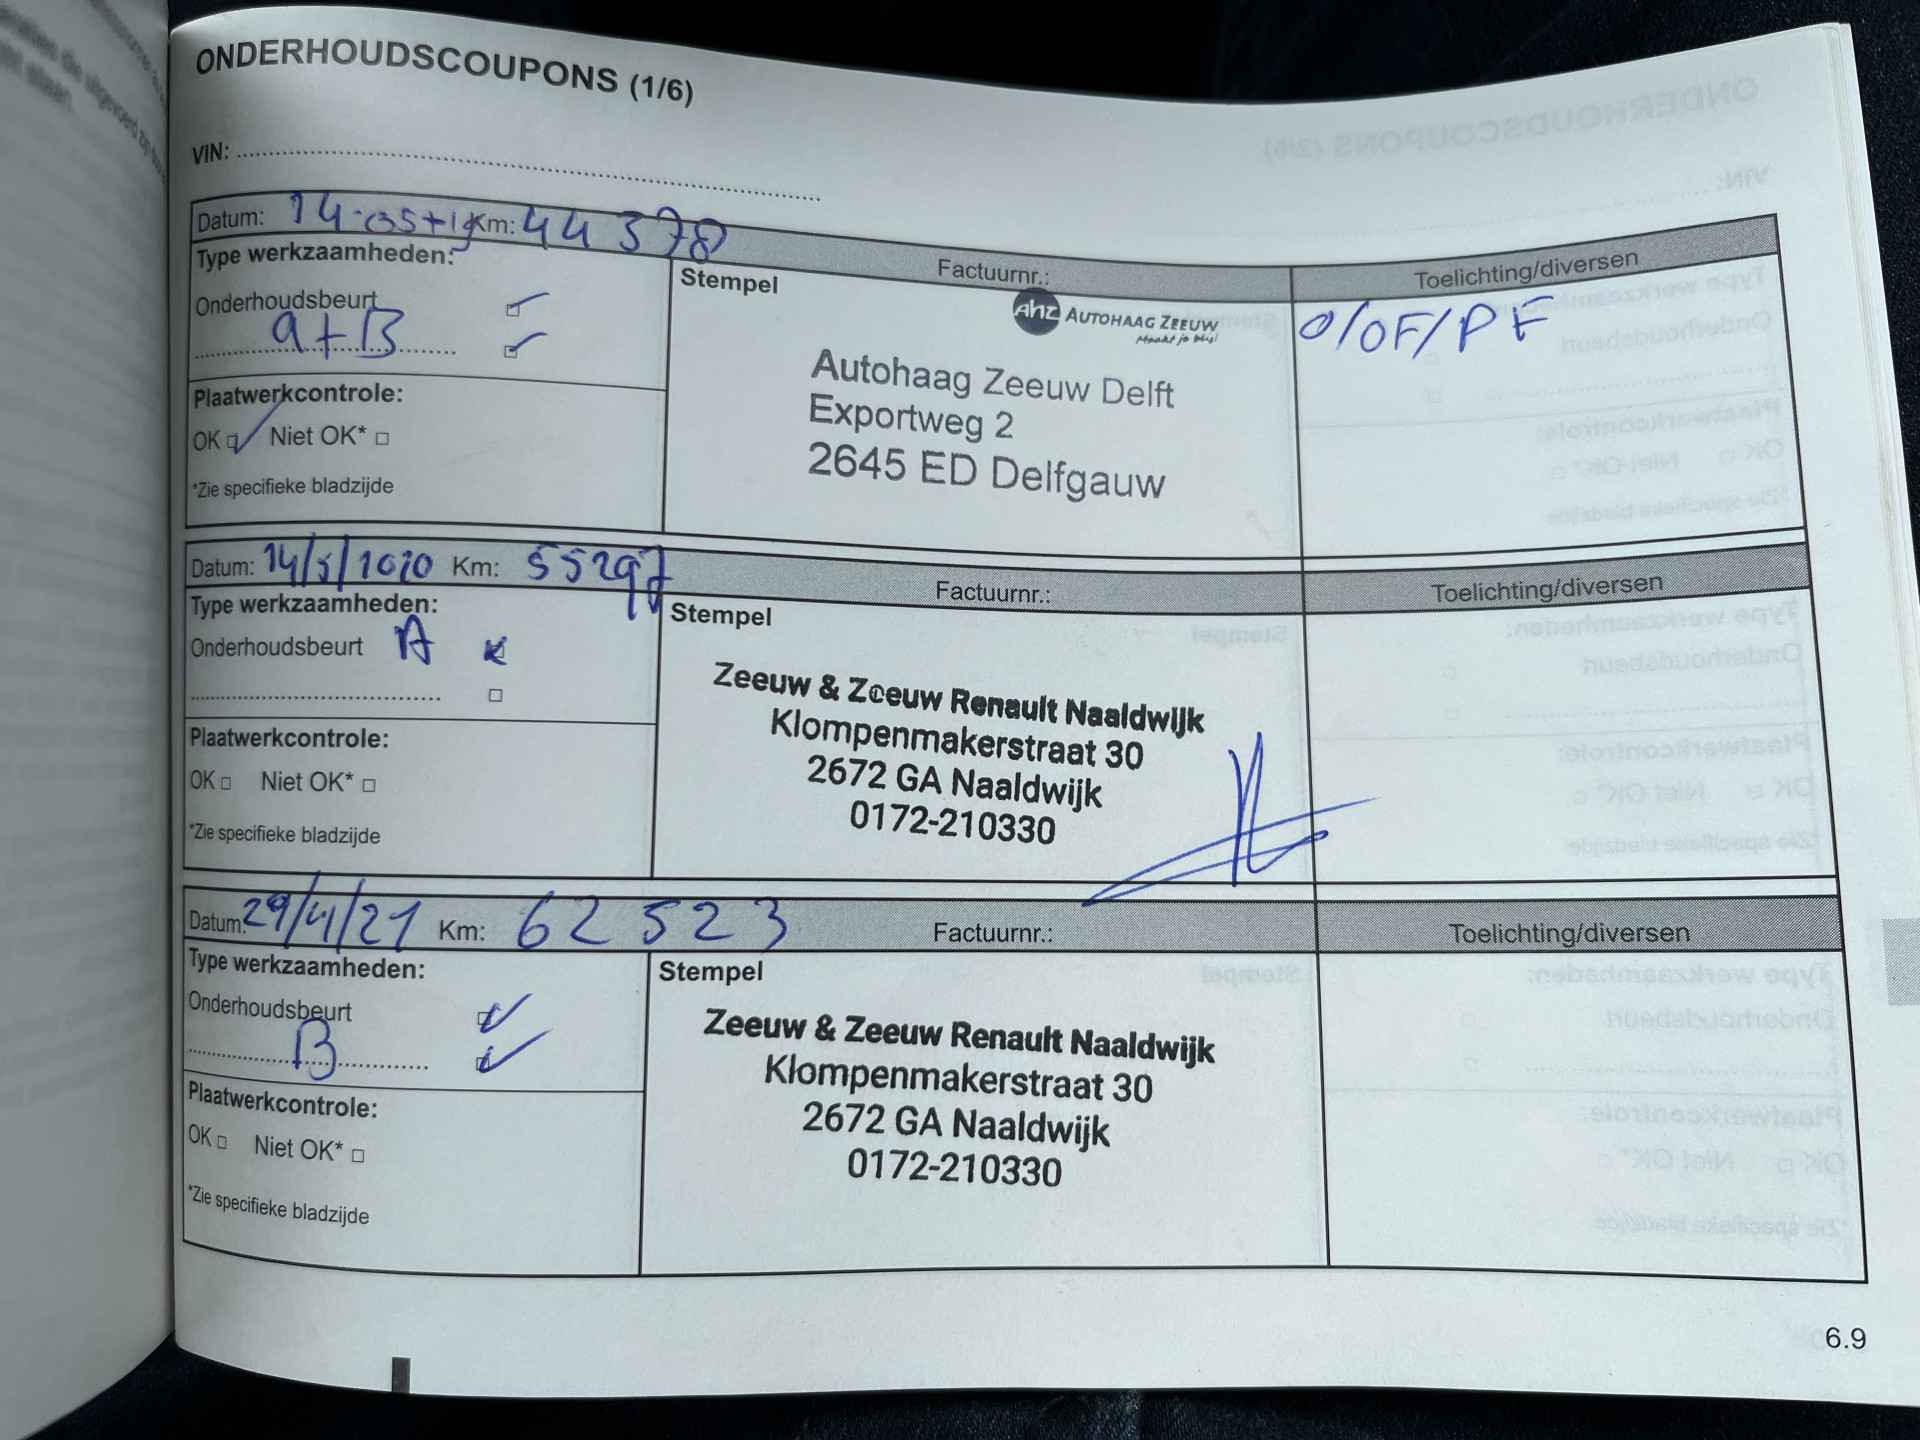 ONDERHOUDSCOUPONS (1/6)
VIN:
Datum: 14-05-19 Km: 44 378
Factuurnr.:
Toelichting/diversen
Type werkzaamheden:
Onderhoudsbeurt
a+B
Plaatwerkcontrole:
OK Niet OK*
*Zie specifieke bladzijde
Stempel
ahz AUTOHAAG ZEEUW
Maakt je blij!
Autohaag Zeeuw Delft
Exportweg 2
2645 ED Delfgauw
O/OF/PF
Datum: 14/5/2020 Km: 55297
Factuurnr.:
Toelichting/diversen
Type werkzaamheden:
Onderhoudsbeurt A
Plaatwerkcontrole:
OK Niet OK*
*Zie specifieke bladzijde
Stempel
Zeeuw & Zeeuw Renault Naaldwijk
Klompenmakerstraat 30
2672 GA Naaldwijk
0172-210330
Datum: 29/4/21 Km: 62523
Factuurnr.:
Toelichting/diversen
Type werkzaamheden:
Onderhoudsbeurt
B
Plaatwerkcontrole:
OK Niet OK*
*Zie specifieke bladzijde
Stempel
Zeeuw & Zeeuw Renault Naaldwijk
Klompenmakerstraat 30
2672 GA Naaldwijk
0172-210330
6.9